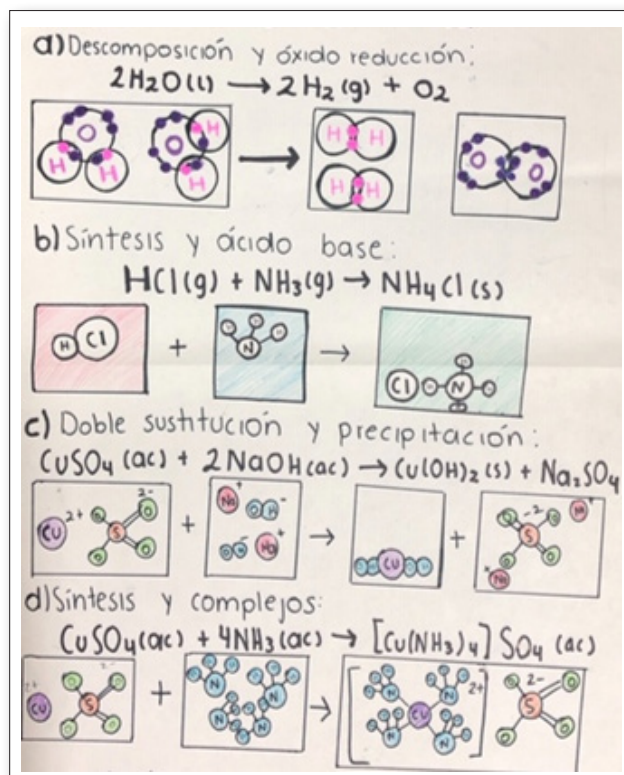 a) Descomposición y óxido reducción:
2H₂O(l) → 2H₂(g) + O₂
O O H H H H
H H H H O O
b) Síntesis y ácido base:
HCl(g) + NH₃(g) → NH₄Cl(s)
H Cl + N → Cl N
c) Doble sustitución y precipitación:
CuSO₄(ac) + 2NaOH(ac) → Cu(OH)₂(s) + Na₂SO₄
Cu 2+ S O O O O 2- + Na + O H - O H - Na + → O H Cu O H + O O O O S -2 Na + Na +
d) Síntesis y complejos:
CuSO₄(ac) + 4NH₃(ac) → [Cu(NH₃)₄]SO₄(ac)
Cu 2+ S O O O O 2- + N N N N → [Cu N N N N] 2+ S O O O O 2-